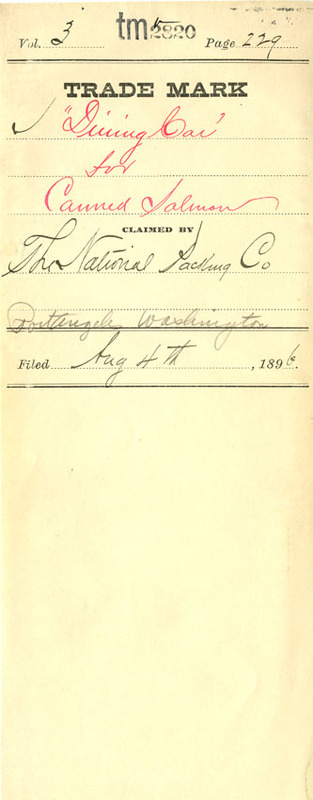 Vol. 3 tm 2820 Page 229
TRADE MARK
"Dining Car"
for
Canned Salmon
CLAIMED BY
The National Packing Co
Port Angeles Washington
Filed Aug 4th, 1896.